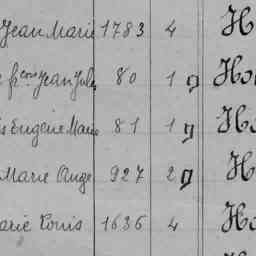 Jean Marie 1783 4 H
fçois Jean Jules 80 1 g Ho
s Eugène Marie 81 1 g Ho
Marie Ange 927 2 g H
arie Louis 1636 4 Ho